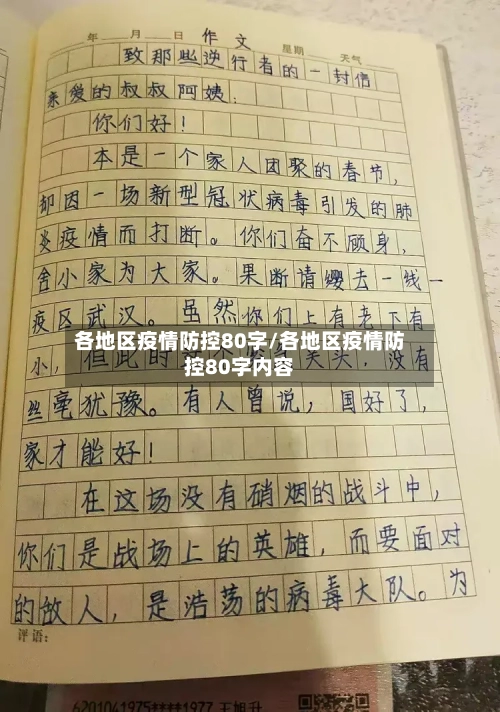 年 月 日 作文 星期 天气
致那些逆行者的一封信
亲爱的叔叔阿姨:
你们好!
本是一个家人团聚的春节,
却因一场新型冠状病毒引发的肺
炎疫情而打断。你们奋不顾身,
舍小家为大家。果断请缨去一线一
疫区武汉。虽然你们上有老下有
小,但此时
没有
各地区疫情防控80字/各地区疫情防
控80字内容
丝毫犹豫。有人曾说,国好了,
家才能好!
在这场没有硝烟的战斗中,
你们是战场上的英雄,而要面对
的敌人,是浩荡的病毒大队。为
评语:
6201041975****1977 王旭升